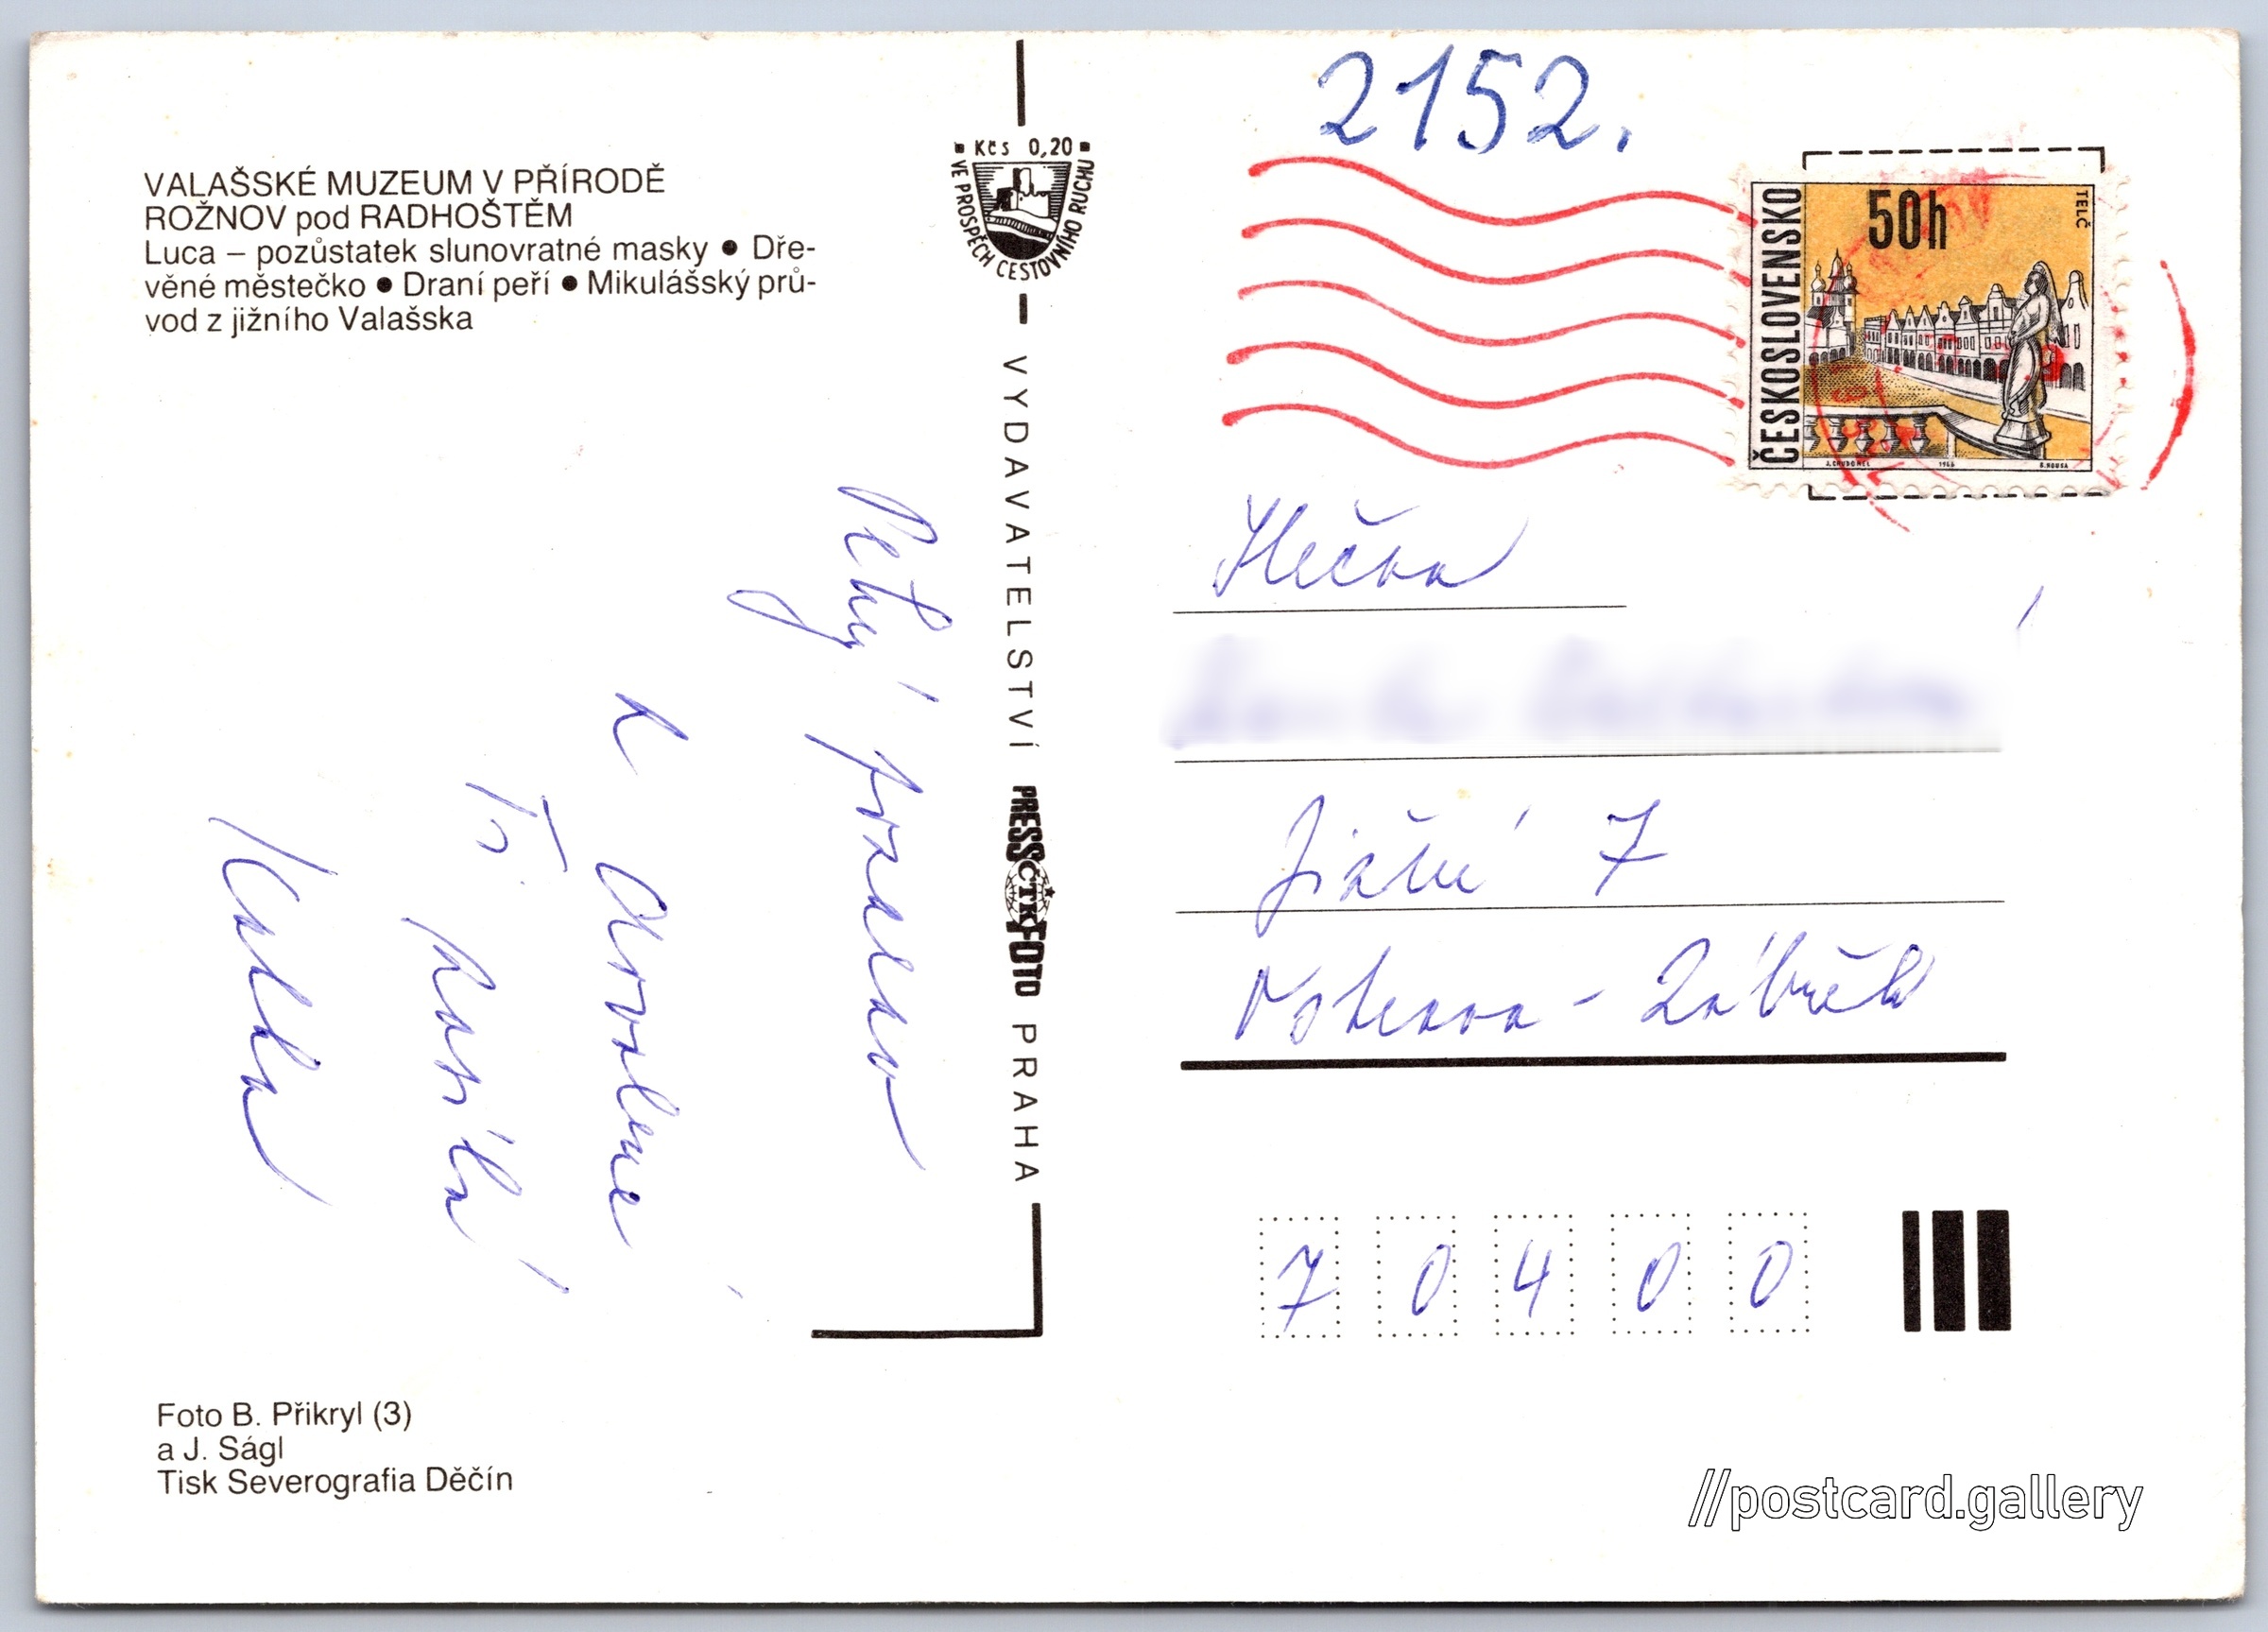 2152.
VALAŠSKÉ MUZEUM V PŘÍRODĚ
ROŽNOV pod RADHOŠTĚM
Luca – pozůstatek slunovratné masky ● Dře-
věné městečko ● Draní peří ● Mikulášský prů-
vod z jižního Valašska
Kčs 0,20
VE PROSPĚCH CESTOVNÍHO RUCHU
VYDAVATELSTVÍ PRESSČTKFOTO PRAHA
ČESKOSLOVENSKO
50h
TELČ
J. CHUDOMEL 1966 B. HOUSA
Pěkný pozdrav
z dovolené
Ti posílá
Slečna
Jižní 7
Ostrava - Zábřeh
70400
Foto B. Přikryl (3)
a J. Ságl
Tisk Severografia Děčín
//postcard.gallery